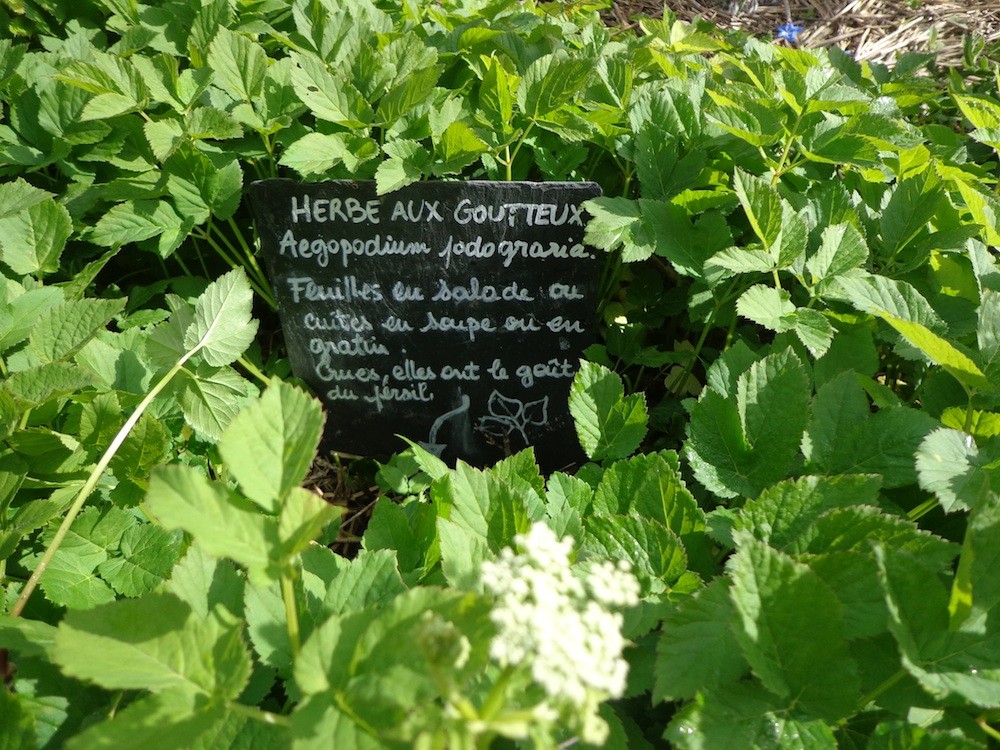 HERBE AUX GOUTTEUX
Aegopodium podograria.
Feuilles en salade ou
cuites en soupe ou en
gratin
Crues, elles ont le goût
du persil